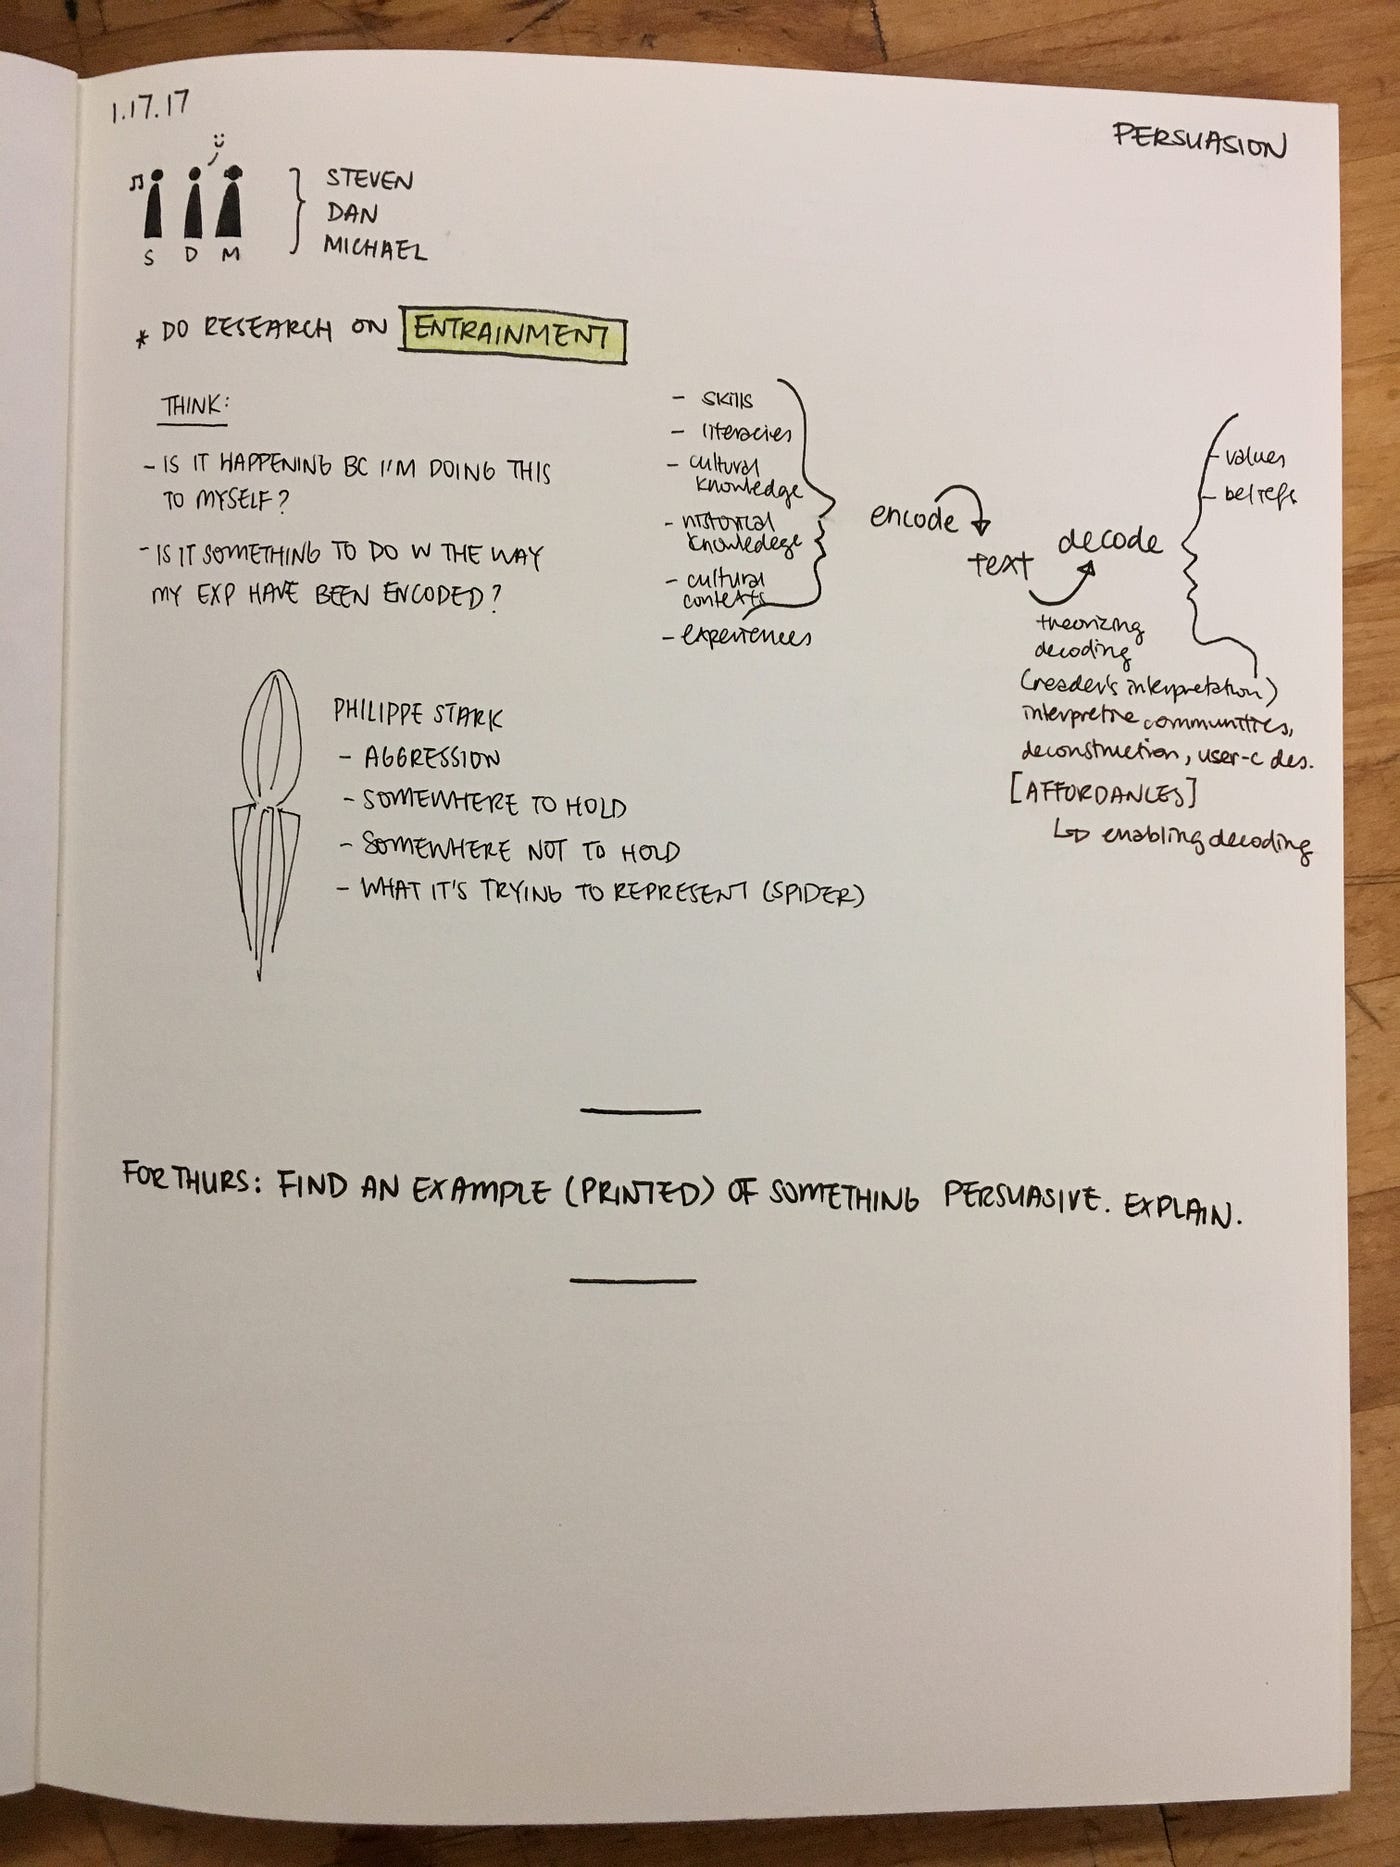 1.17.17
PERSUASION
S D M
STEVEN
DAN
MICHAEL
* DO RESEARCH ON ENTRAINMENT
THINK:
- IS IT HAPPENING BC I'M DOING THIS
TO MYSELF?
- IS IT SOMETHING TO DO W THE WAY
MY EXP HAVE BEEN ENCODED?
- skills
- literacies
- cultural
knowledge
- historical
knowledege
- cultural
contexts
- experiences
encode
text
decode
- values
- beliefs
theorizing
decoding
(reader's interpretation)
interpretive communities,
deconstruction, user-c des.
[AFFORDANCES]
↳ enabling decoding
PHILIPPE STARK
- AGGRESSION
- SOMEWHERE TO HOLD
- SOMEWHERE NOT TO HOLD
- WHAT IT'S TRYING TO REPRESENT (SPIDER)
FOR THURS: FIND AN EXAMPLE (PRINTED) OF SOMETHING PERSUASIVE. EXPLAIN.